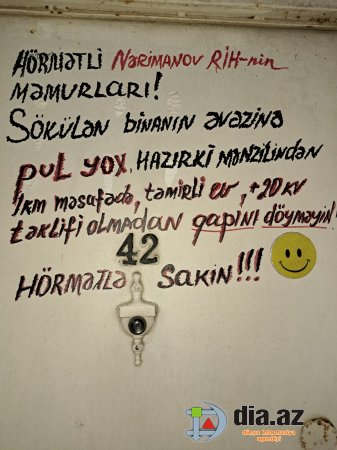 HÖRMƏTLİ NƏRİMANOV RİH-nin
MƏMURLARI!
SÖKÜLƏN BİNANIN ƏVƏZİNƏ
PUL YOX, HAZIRKI MƏNZİLİNDƏN
1km məsafədə, təmirli ev, +20 KV
təklifi OLMADAN qapını döyməyin!
42
HÖRMƏTLƏ SAKİN!!!
dia.az
dünya informasiya
agentliyi